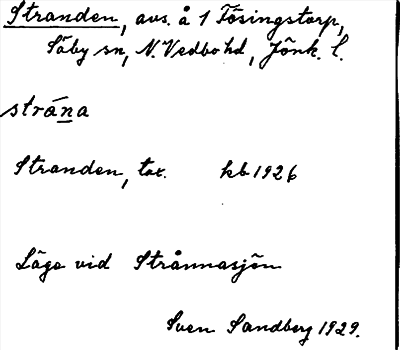 Stranden, avs. å 1 Fösingstorp,
Säby sn, N. Vedbo hd, Jönk. l.
strána
Stranden, tax. kb 1926
Läge vid Strånnasjön
Sven Sandberg 1929.